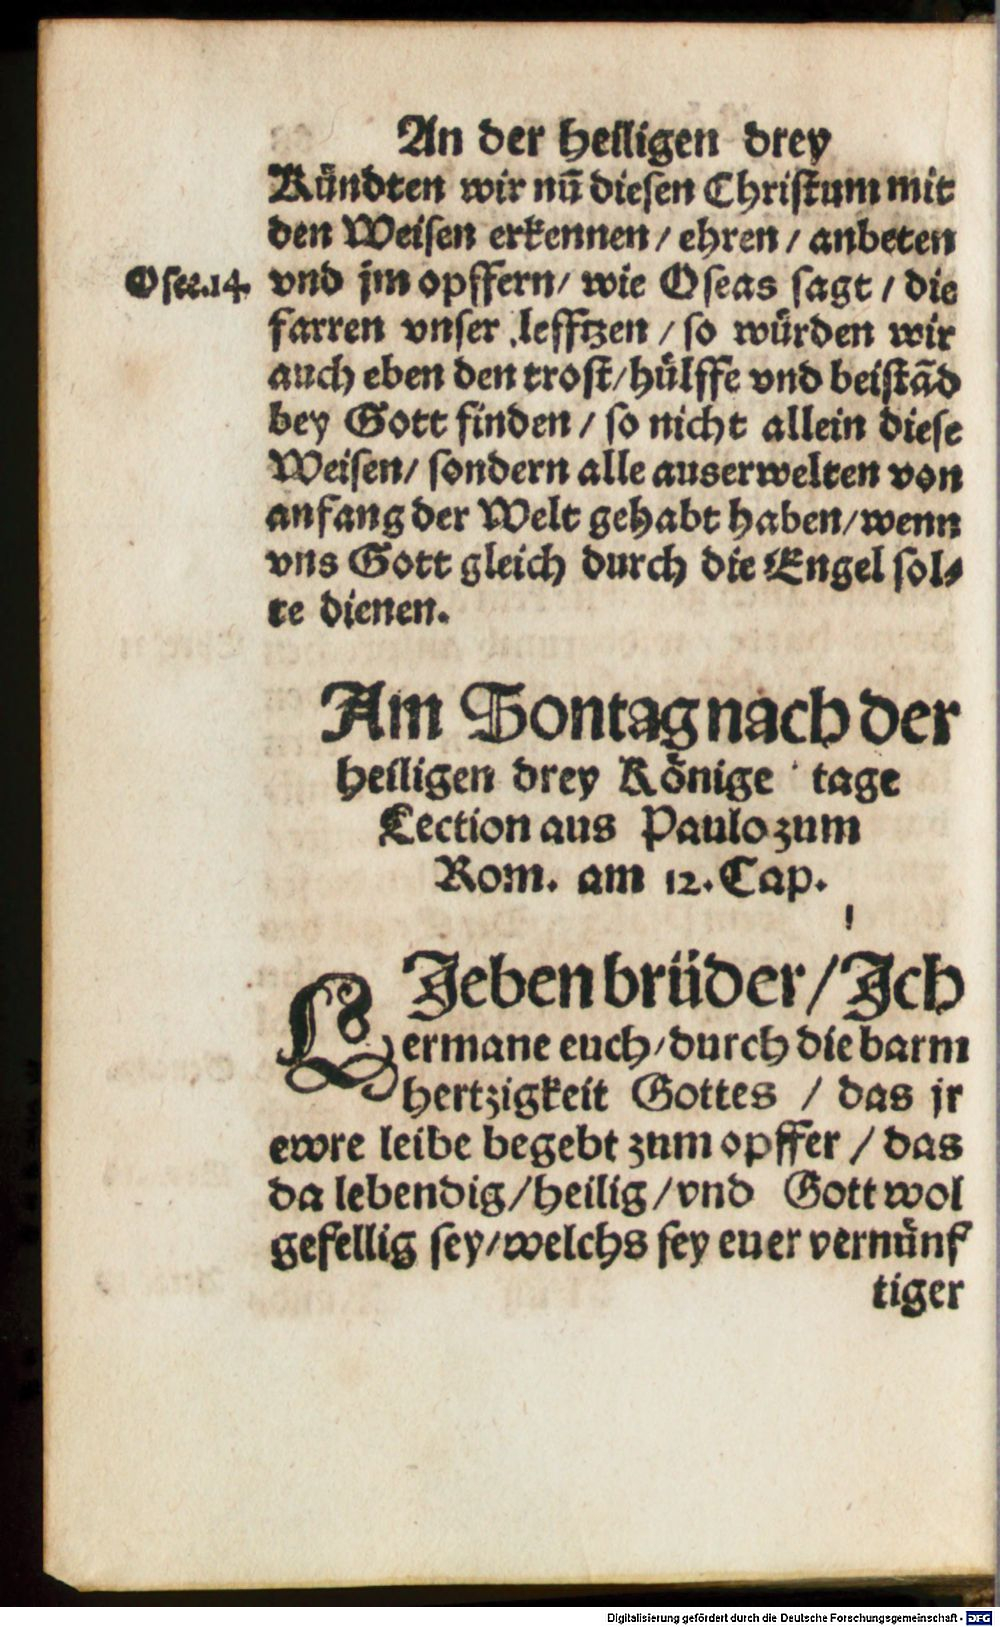 An der heiligen drey
Kündten wir nū diesen Christum mit
den Weisen erkennen / ehren / anbeten
Osee.14.
vnd jm opffern / wie Oseas sagt / die
farren vnser lefftzen / so würden wir
auch eben den trost / hülffe vnd beistād
bey Gott finden / so nicht allein diese
Weisen / sondern alle auserwelten von
anfang der Welt gehabt haben / wenn
vns Gott gleich durch die Engel sol⸗
te dienen.
Am Sontag nach der
heiligen drey Könige tage
Lection aus Paulo zum
Rom. am 12. Cap.
LJeben brüder / Jch
ermane euch / durch die barm
hertzigkeit Gottes / das jr
ewre leibe begebt zum opffer / das
da lebendig / heilig / vnd Gott wol
gefellig sey / welchs sey euer vernünf
tiger
Digitalisierung gefördert durch die Deutsche Forschungsgemeinschaft - DFG